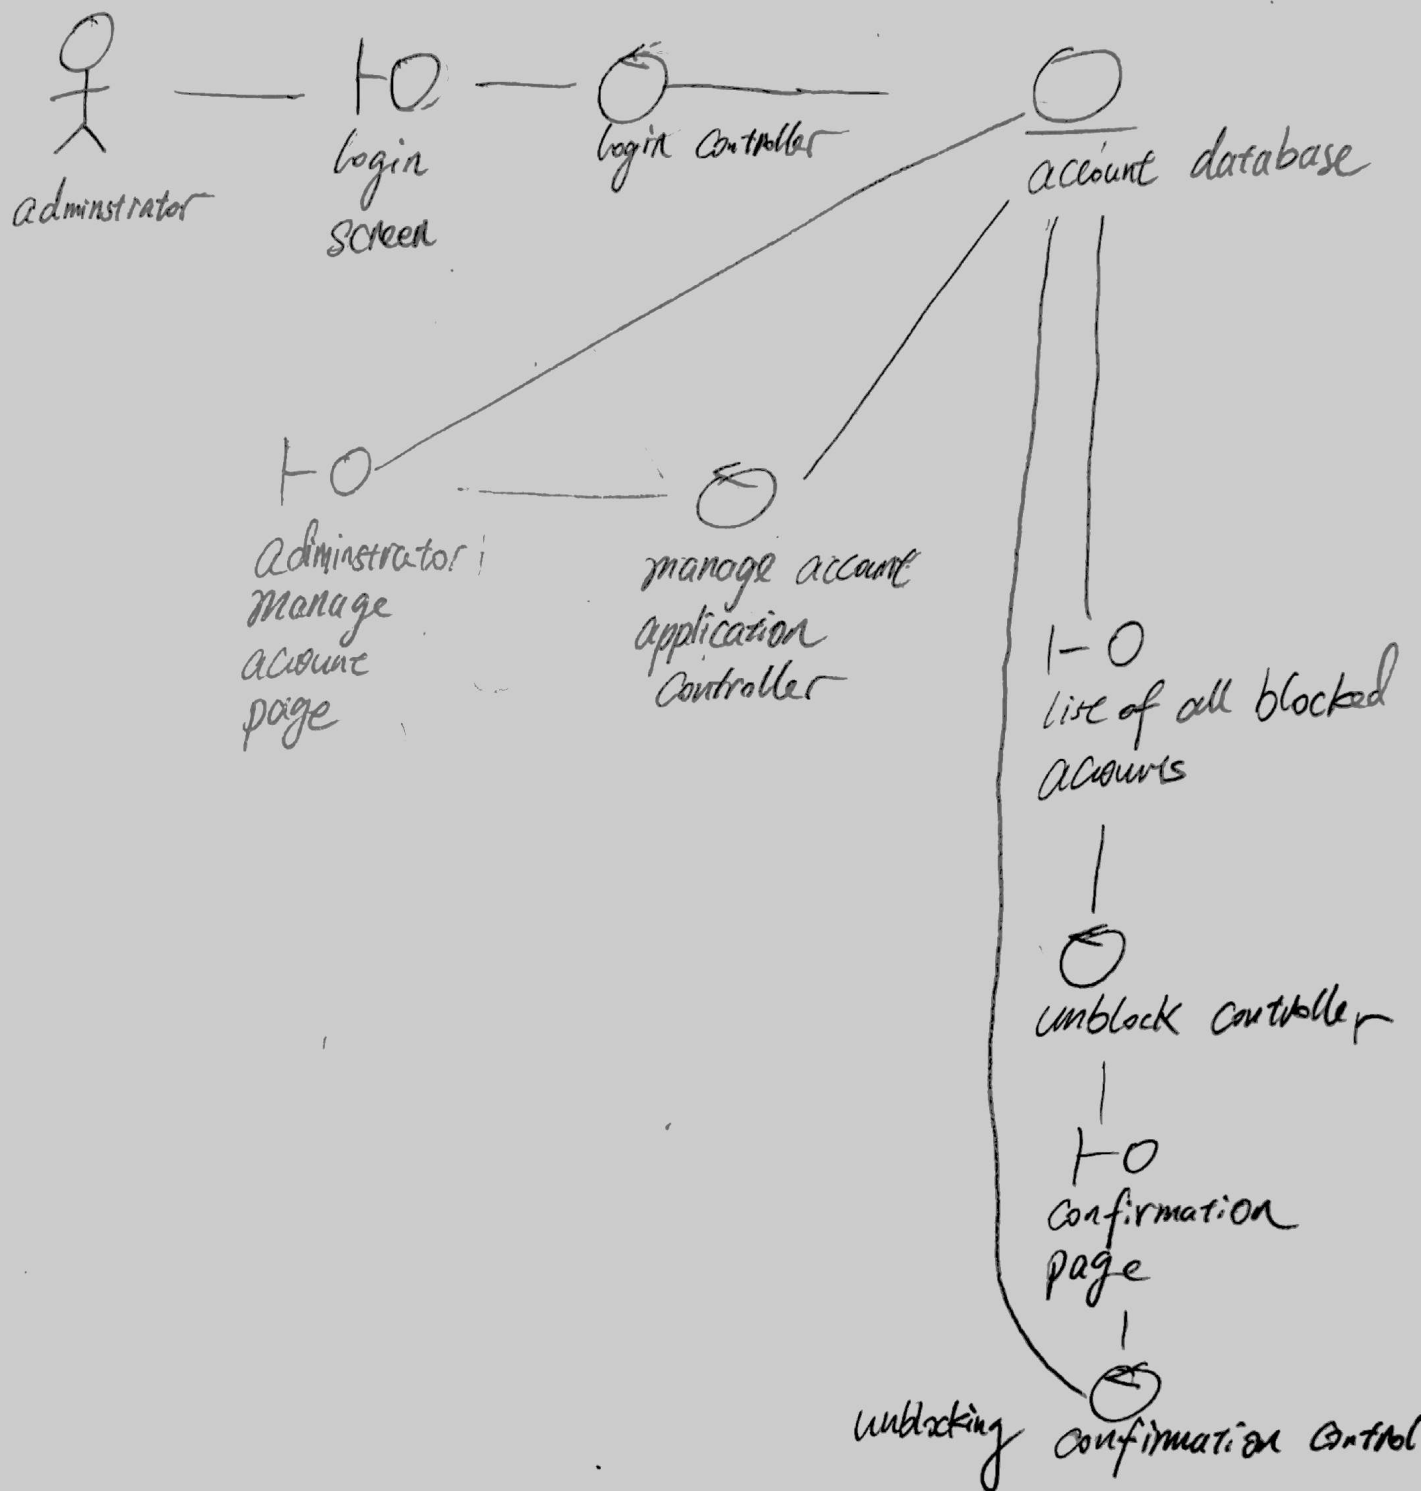 adminstrator
login
screen
login controller
account database
adiminstrator
manage
account
page
manage account
application
controller
list of all blocked
accounts
unblock controller
confirmation
page
unblocking confirmation control